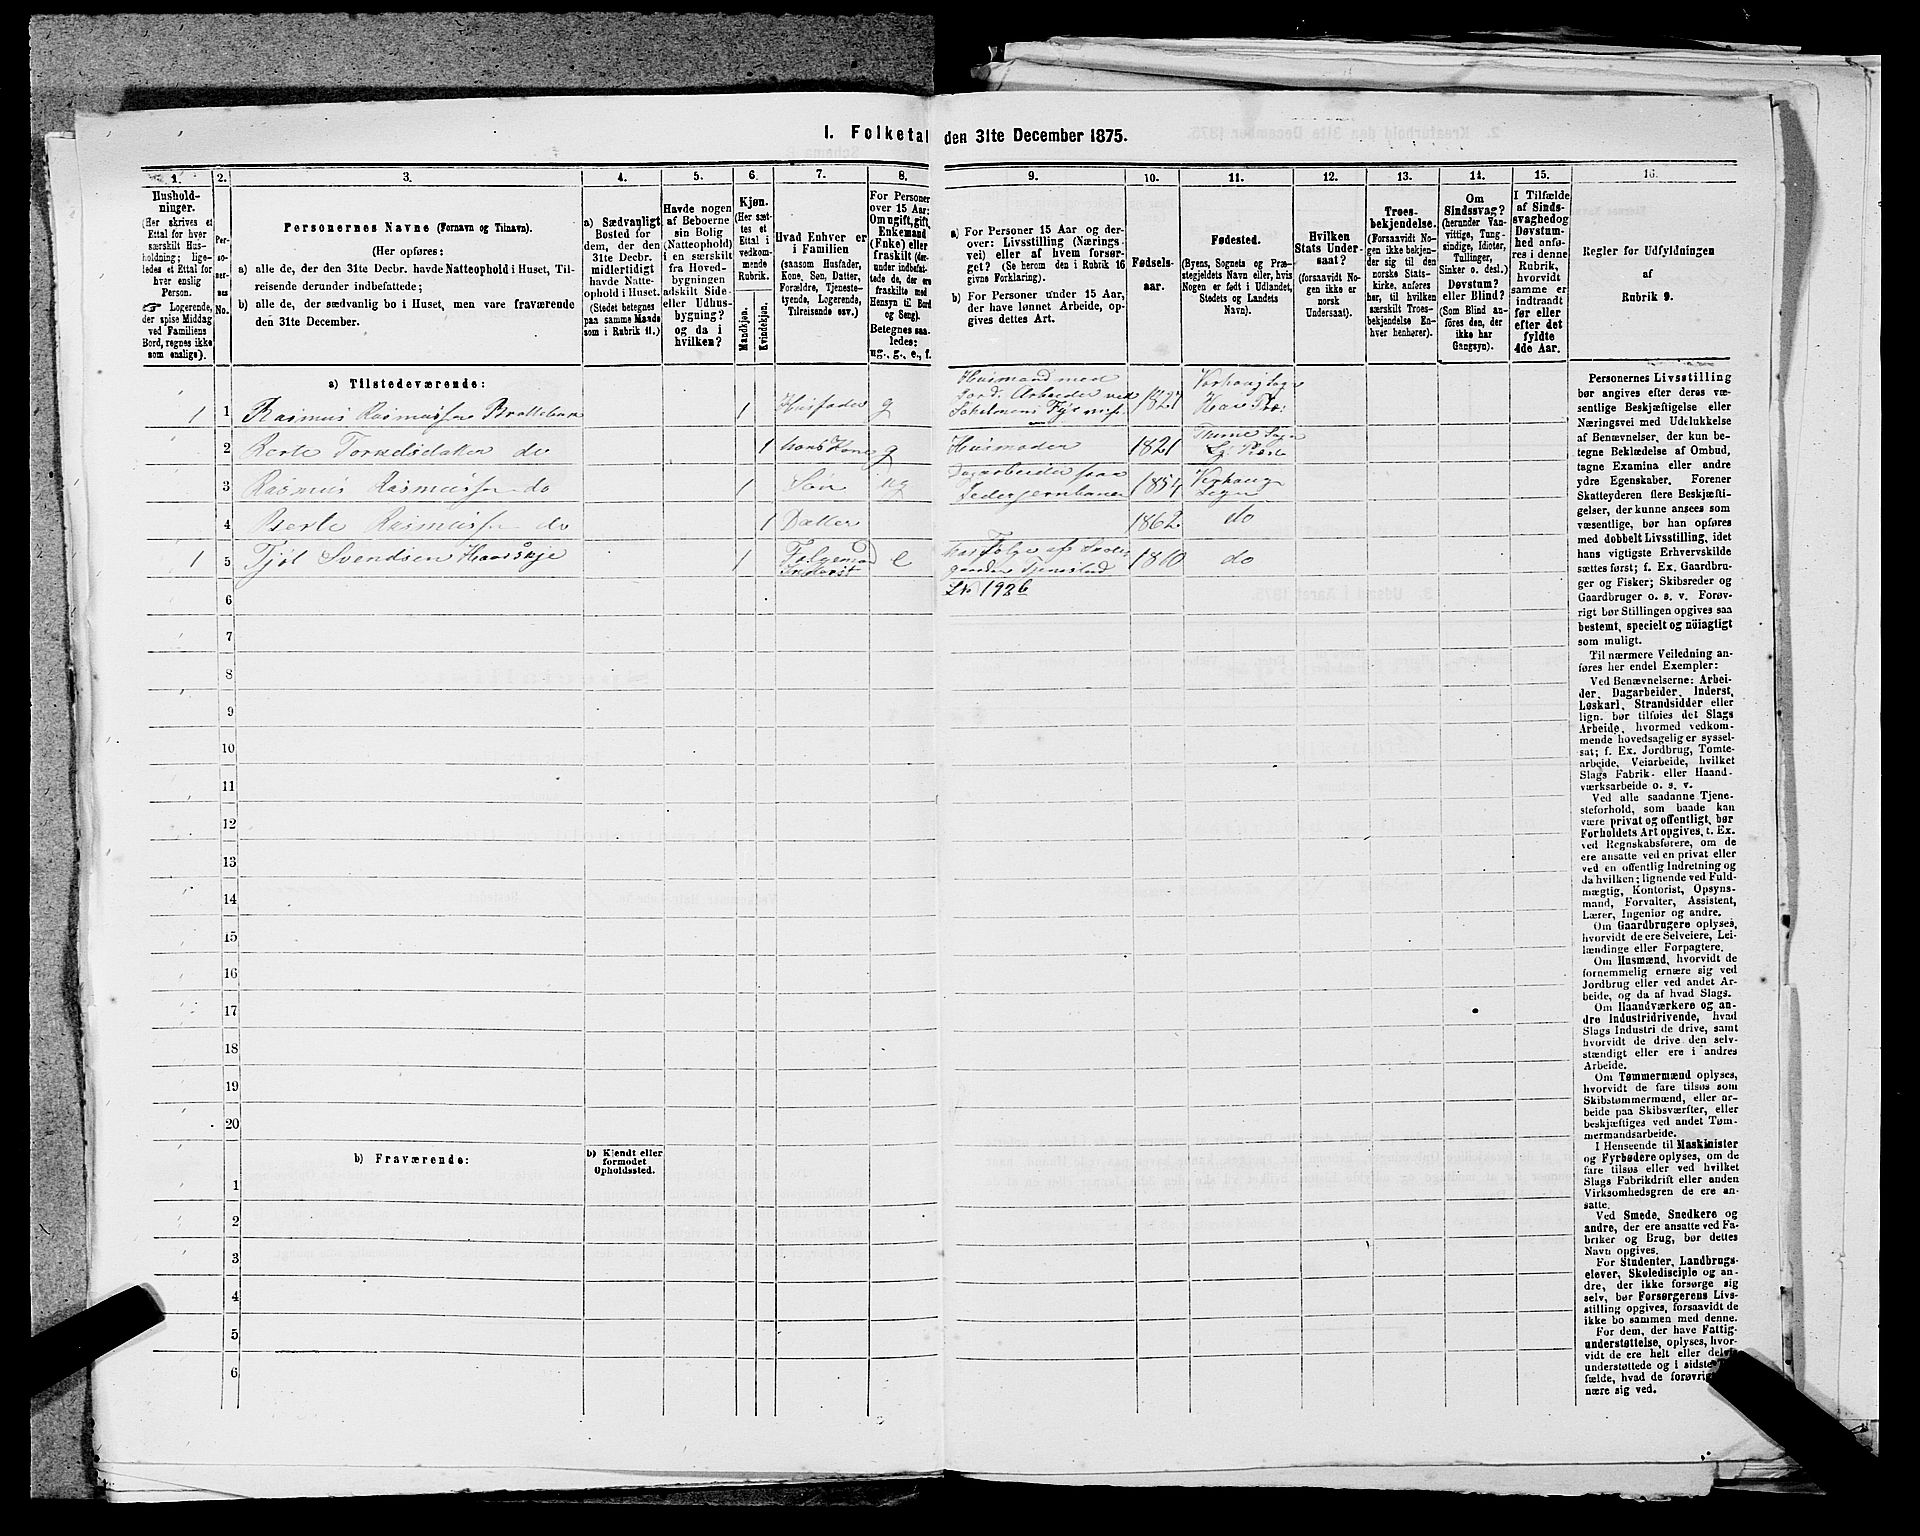 I. Folketal den 31te December 1875.
1.
2.
3.
4.
5.
6.
7.
8.
9.
10.
11.
12.
13.
14.
15.
16.
Hushold-
ninger.
(Her skrives et
Ettal for hver
særskilt Hus-
holdning; lige-
ledes et Ettal for
hver enslig
Person.
☞ Logerende,
der spise Middag
ved Familiens
Bord, regnes ikke
som enslige).
Per-
so-
ner-
nes
No.
Personernes Navne (Fornavn og Tilnavn).
(Her opføres:
a) alle de, der den 31te Decbr. havde Natteophold i Huset, Til-
reisende derunder indbefattede;
b) alle de, der sædvanlig bo i Huset, men vare fraværende
den 31te December.
a) Sædvanligt
Bosted for
dem, der den
31te Decbr.
midlertidigt
havde Natte-
ophold i Huset.
(Stedet betegnes
paa samme Maade
som i Rubrik 11.)
Havde nogen
af Beboerne
sin Bolig
(Natteophold)
i en særskilt
fra Hoved-
bygningen
adskilt Side-
eller Udhus-
bygning?
og da i
hvilken?
Kjøn.
(Her sæt-
tes et
Ettal i
vedkom-
mende
Rubrik.
Mandkjøn.
Kvindekjøn.
Hvad Enhver er
i Familien
(saasom Husfader,
Kone, Søn, Datter,
Forældre, Tjeneste-
tyende, Logerende,
Tilreisende osv.)
For Personer
over 15 Aar:
Om ugift, gift,
Enkemand
(Enke) eller
fraskilt (der-
under indbefat-
tede de, der ere
fraskilte med
Hensyn til Bord
og Seng).
Betegnes saa-
ledes:
ug., g., e., f.
a) For Personer 15 Aar og der-
over: Livsstilling (Nærings-
vei) eller af hvem forsør-
get? (Se herom den i Rubrik 16
givne Forklaring).
b) For Personer under 15 Aar,
der have lønnet Arbeide, op-
gives dettes Art.
Fødsels-
aar.
Fødested.
(Byens, Sognets og Præ-
stegjeldets Navn eller, hvis
Nogen er født i Udlandet,
Stedets og Landets
Navn).
Hvilken
Stats Under-
saat?
(forsaavidt No-
gen ikke er
norsk
Undersaat).
Troes-
bekjendelse.
(Forsaavidt No-
gen ikke bekjen-
der sig til den
norske Stats-
kirke, anføres
her, til hvilken
særskilt Troes-
bekjendelse En-
hver henhører).
Om
Sindssvag?
(herunder Van-
vittige, Tung-
sindige, Idioter,
Tullinger,
Sinker o. desl.)
Døvstum?
eller Blind?
(Som Blind an-
føres den, der
ikke har
Gangsyn).
I Tilfælde
af Sinds-
svaghed og
Døvstum-
hed anfø-
res i denne
Rubrik,
hvorvidt
samme er
indtraadt
før eller
efter det
fyldte
4de Aar.
Regler for Udfyldningen
af
Rubrik 9.
a) Tilstedeværende:
1 1 Rasmus Rasmussen 1 Husfader g Husmand med Jord. Arbeider ved 1821
2 Berte do 1 hans Kone g Husmoder 1821
3 Rasmus Rasmussen do 1 Søn ug Dagarbeider paa 1854
4 Berte Rasmussen do 1 Datter 1862 do
1 5 Svendsen 1 e 1810 do
6 1926
7
8
9
10
11
12
13
14
15
16
17
18
19
20
b) Fraværende:
b) Kjendt eller
formodet
Opholdssted.
1
2
3
4
5
6
Personernes Livsstilling
bør angives efter deres væ-
sentlige Beskjæftigelse eller
Næringsvei med Udelukkelse
af Benævnelser, der kun be-
tegne Beklædelse af Ombud,
tagne Examina eller andre
ydre Egenskaber. Forener
Skatteyderen flere Beskjæfti-
gelser, der kunne ansees som
væsentlige, bør han opføres
med dobbelt Livsstilling, idet
hans vigtigste Erhvervskilde
sættes først; f. Ex. Gaardbru-
ger og Fisker; Skibsreder og
Gaardbruger o. s. v. Forøv-
rigt bør Stillingen opgives saa
bestemt, specielt og nöiagtigt
som muligt.
Til nærmere Veiledning an-
føres her endel Exempler:
Ved Benævnelserne: Arbei-
der, Dagarbeider, Inderst,
Løskarl, Strandsidder eller
lign. bør tilføies det Slags
Arbeide, hvormed vedkom-
mende hovedsagelig er syssel-
sat; f. Ex. Jordbrug, Tomte-
arbeide, Veiarbeide, hvilket
Slags Fabrik- eller Haand-
værksarbeide o. s. v.
Ved alle saadanne Tjene-
steforhold, som baade kan
være privat og offentligt, bør
Forholdets Art opgives, t. Ex.
ved Regnskabsførere, om de
ere ansatte ved en privat eller
ved en offentlig Indretning og
da hvilken; lignende ved Fuld-
mægtig, Kontorist, Opsyns-
mand, Forvalter, Assistent,
Lærer, Ingeniør og andre.
Om Gaardbrugere oplyses,
hvorvidt de ere Selveiere, Lei-
lændinge eller Forpagtere.
Om Husmænd, hvorvidt de
fornemmelig ernære sig ved
Jordbrug eller ved andet Ar-
beide, og da af hvad Slags.
Om Haandværkere og an-
dre Industridrivende, hvad
Slags Industri de drive, samt
hvorvidt de drive den selv-
stændigt eller ere i andres
Arbeide.
Om Tømmermænd oplyses,
hvorvidt de fare tilsøs som
Skibstømmermænd, eller ar-
beide paa Skibsværfter, eller
beskjæftiges ved andet Tøm-
mermandsarbeide.
I Henseende til Maskinister
og Fyrbødere oplyses, om de
fare tilsøs eller ved hvilket
Slags Fabrikdrift eller anden
Virksomhedsgren de ere an-
satte.
Ved Smede, Snedkere og
andre, der ere ansatte ved Fa-
briker og Brug, bør dettes
Navn opgives.
For Studenter, Landbrugs-
elever, Skoledisciple og an-
dre, der ikke forsørge sig
selv, bør Forsørgerens Livs-
stilling opgives, forsaavidt de
ikke bo sammen med denne.
For dem, der have Fattig-
understøttelse, oplyses, hvor-
vidt de ere helt eller delvis
understøttede og i sidste
fælde, hvad de forøvrigt
nære sig ved.